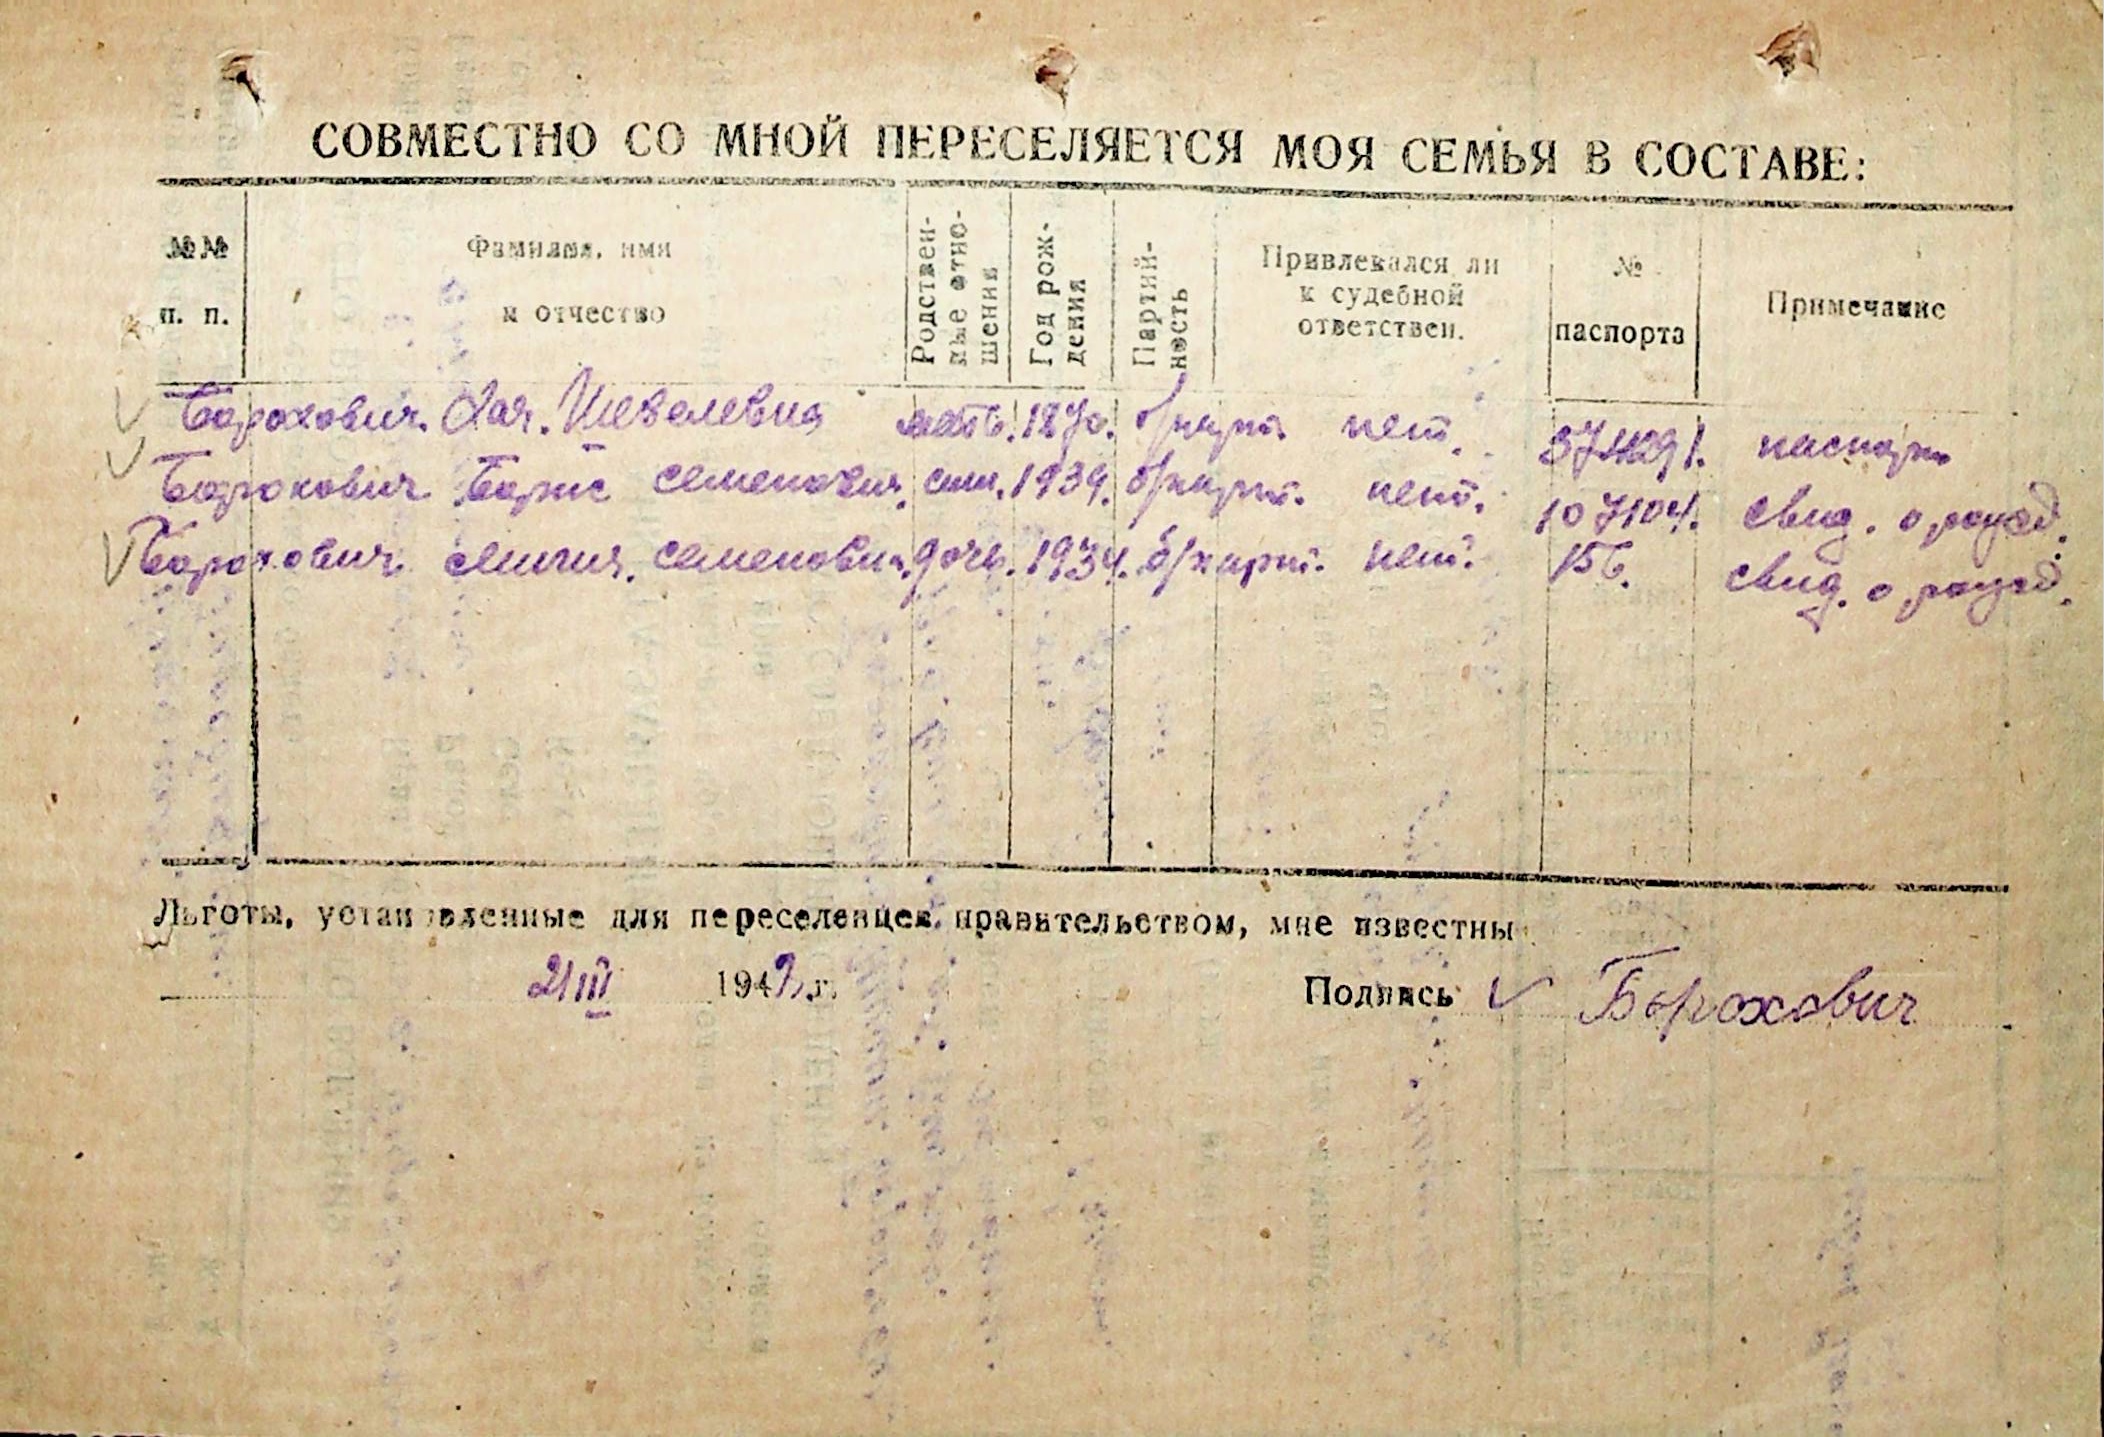 СОВМЕСТНО СО МНОЙ ПЕРЕСЕЛЯЕТСЯ МОЯ СЕМЬЯ В СОСТАВЕ:
№№ п. п.
Фамилия, имя и отчество
Родствен-ные отно-шения
Год рож-дения
Партий-ность
Привлекался ли к судебной ответствен.
№ паспорта
Примечание
Борохович. Хая. Шевелевна мать. 1870. б/парт. нет. паспорт
Борохович Борис Семенович. сын. 1939. б/парт. нет. 107104. Свид. о рожд.
Борохович Семеновна. дочь. 1934. б/парт. нет. 156. Свид. о рожд.
Льготы, установленные для переселенцев правительством, мне известны
21 III 1949 г. Подпись Борохович